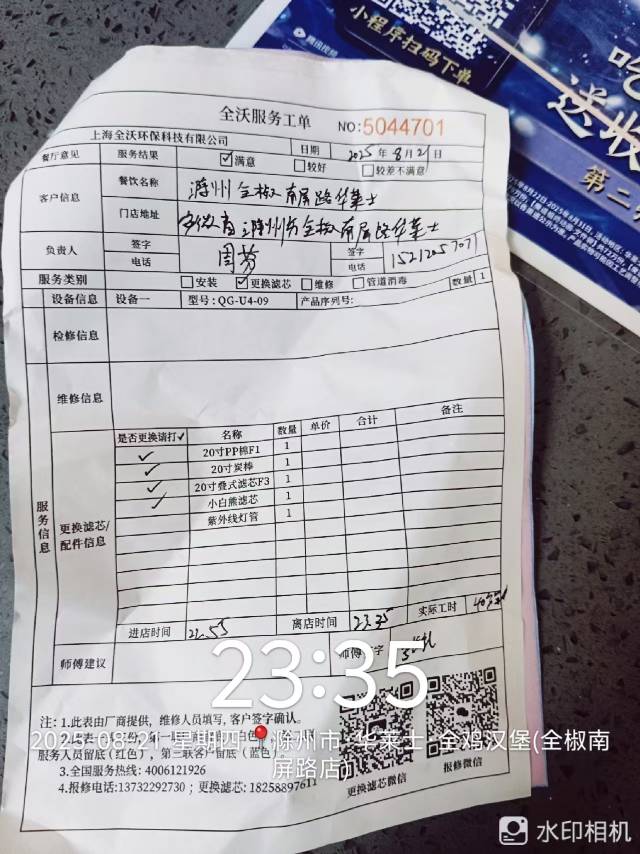 小程序扫码下单
腾讯视频
送收
第二
全沃服务工单 NO:5044701
上海全沃环保科技有限公司 日期 2025年8月21日
餐厅意见 服务结果 ☑满意 □较好 □较差不满意
客户信息 餐饮名称 滁州全椒南屏路华莱士
门店地址 安徽省滁州市全椒南屏路华莱士
负责人 签字 签字
电话 电话
服务类别 □安装 ☑更换滤芯 □维修 □管道消毒 数量 1
设备信息 设备一 型号:QG-U4-09 产品序列号:
检修信息
维修信息
服务信息
更换滤芯/配件信息
是否更换请打✓ 名称 数量 单价 合计 备注
✓ 20寸PP棉F1 1
✓ 20寸炭棒 1
✓ 20寸叠式滤芯F3 1
✓ 小白熊滤芯 1
紫外线灯管 1
进店时间 22.55 离店时间 23.35 实际工时
师傅建议 师傅签字
23:35
注:1.此表由厂商提供，维修人员填写，客户签字确认。
2025-08-21 星期四 滁州市·华莱士·全鸡汉堡(全椒南屏路店)
服务人员留底(红色)，第三联客户留底(蓝色)。
3.全国服务热线:4006121926
4.报修电话:13732292730;更换滤芯:18258897611
更换滤芯微信
报修微信
水印相机